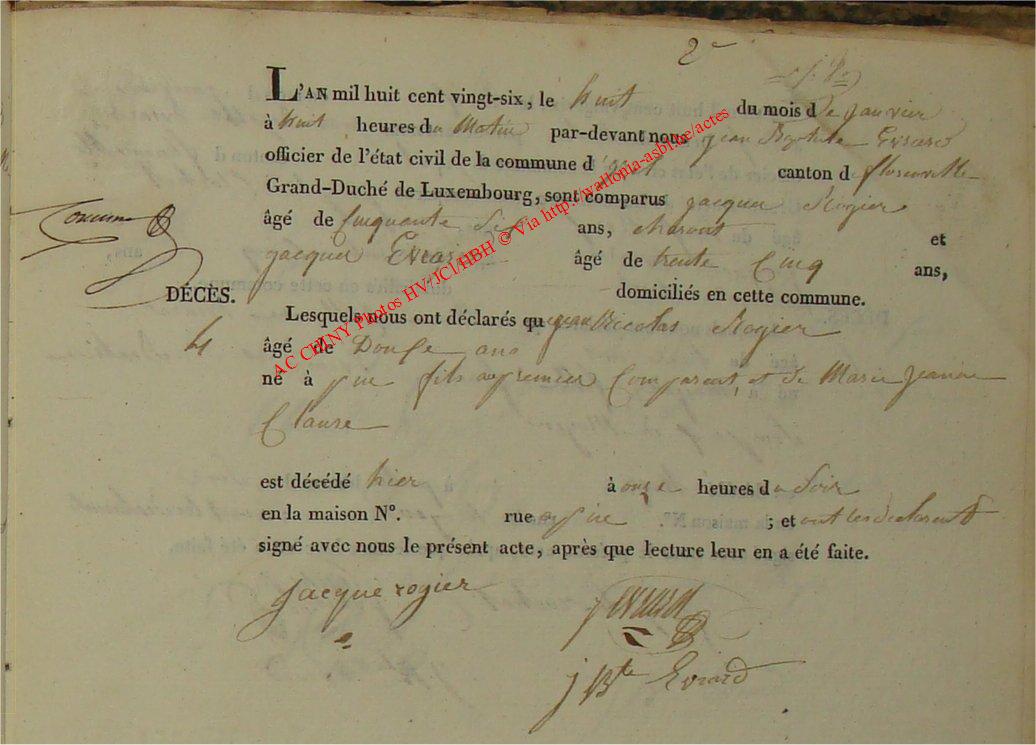 2e
L'AN mil huit cent vingt-six, le huit du mois de Janvier
à huit heures du Matin par-devant nous jean Baptiste Evrard
officier de l'état civil de la commune d'izel canton de florenville
Grand-Duché de Luxembourg, sont comparus jacques Rogier
âgé de Cinquante Six ans, charont et
jacques Evrard âgé de trente Cinq ans,
domiciliés en cette commune.
DÉCÈS.
Lesquels nous ont déclarés que jean Nicolas Rogier
4
âgé de Douse ans
né à pin fils au premier Comparent, et de Marie jeanne
Clause
est décédé hier à onse heures du Soir
en la maison N°. rue a pin ; et ont les declarent
signé avec nous le présent acte, après que lecture leur en a été faite.
jacque rogier
j evrard
j Bte Evrard
AC CHINY Photos HV/JCl/HBH © Via http://wallonia-asbl.be/actes